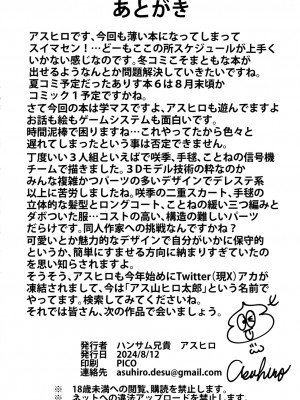 あとがき
アスヒロです、今回も薄い本になってしまって
スイマセン！…どーもここの所スケジュールが上手く
いかない感じなのです。冬コミこそまともな本が
出せるようなんとか問題解決していきたいですね。
夏コミ予定だったありす本6は8月末頃か
コミック1予定ですかね。
さて今回の本は学マスですよ、アスヒロも遊んでますよ
お話も絵もゲームシステムも面白いです。
時間泥棒で困りますね…これやってたから色々と
遅れてしまったという事は否定できません。
丁度いい3人組といえばで咲季、手毬、ことねの信号機
チームで描きました。3Dモデル技術の粋なのか
みんな複雑かつパーツの多いデザインでデレステ系
以上に苦労しましたね。咲季の二重スカート、手毬の
立体的な髪型とロングコート、ことねの緩い三つ編みと
ダボついた服…コストの高い、構造の難しいパーツ
だらけです。同人作家への挑戦なんですかね？
可愛いとか魅力的なデザインで自分がいかに保守的
というか、簡単にすませる方向に納まりすぎていたの
を思い知らされますよ。
そうそうです、アスヒロも今年始めにTwitter(現X)アカが
凍結されまして、今は「アス山ヒロ太郎」という名前で
やってます。検索してみてくださいね。
それでは皆さん、次の作品で会いましょう。
発行者　ハンサム兄貴　アスヒロ
発行日　2024/8/12
印刷　PICO
連絡先　asuhiro.desu@gmail.com
Asuhiro
※ 18歳未満への閲覧、購読を禁止します。
※ ネットへの違法アップロードを禁止します。